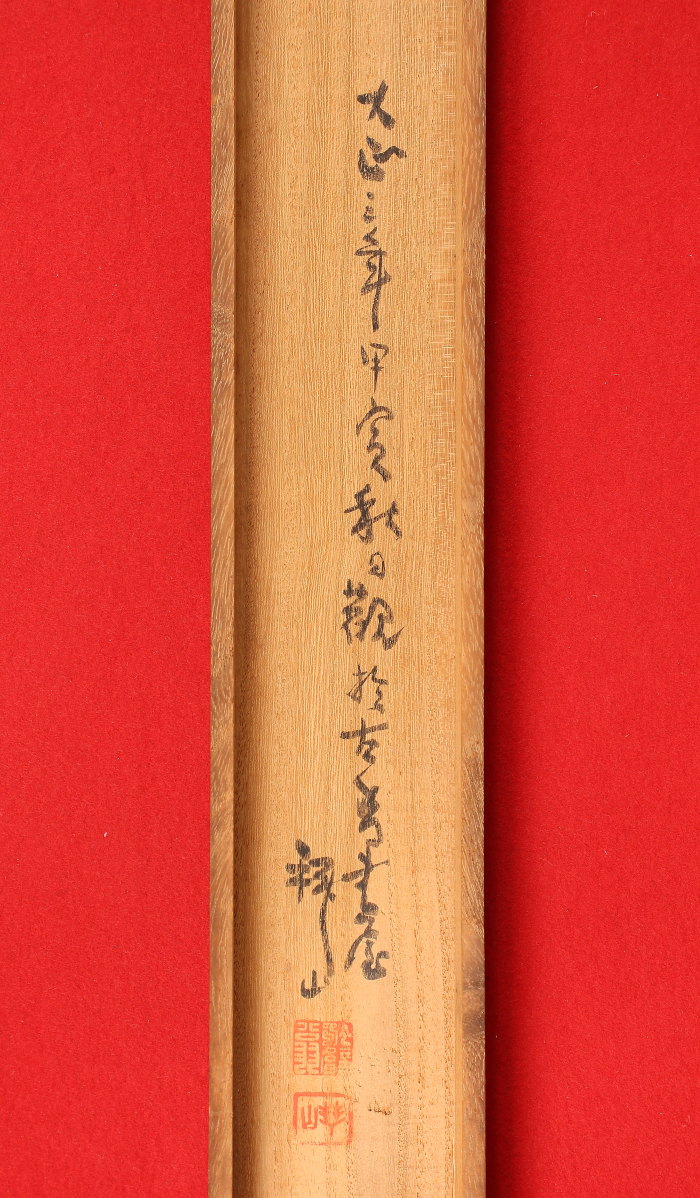 大正三年甲寅秋日觀於古香書屋
山